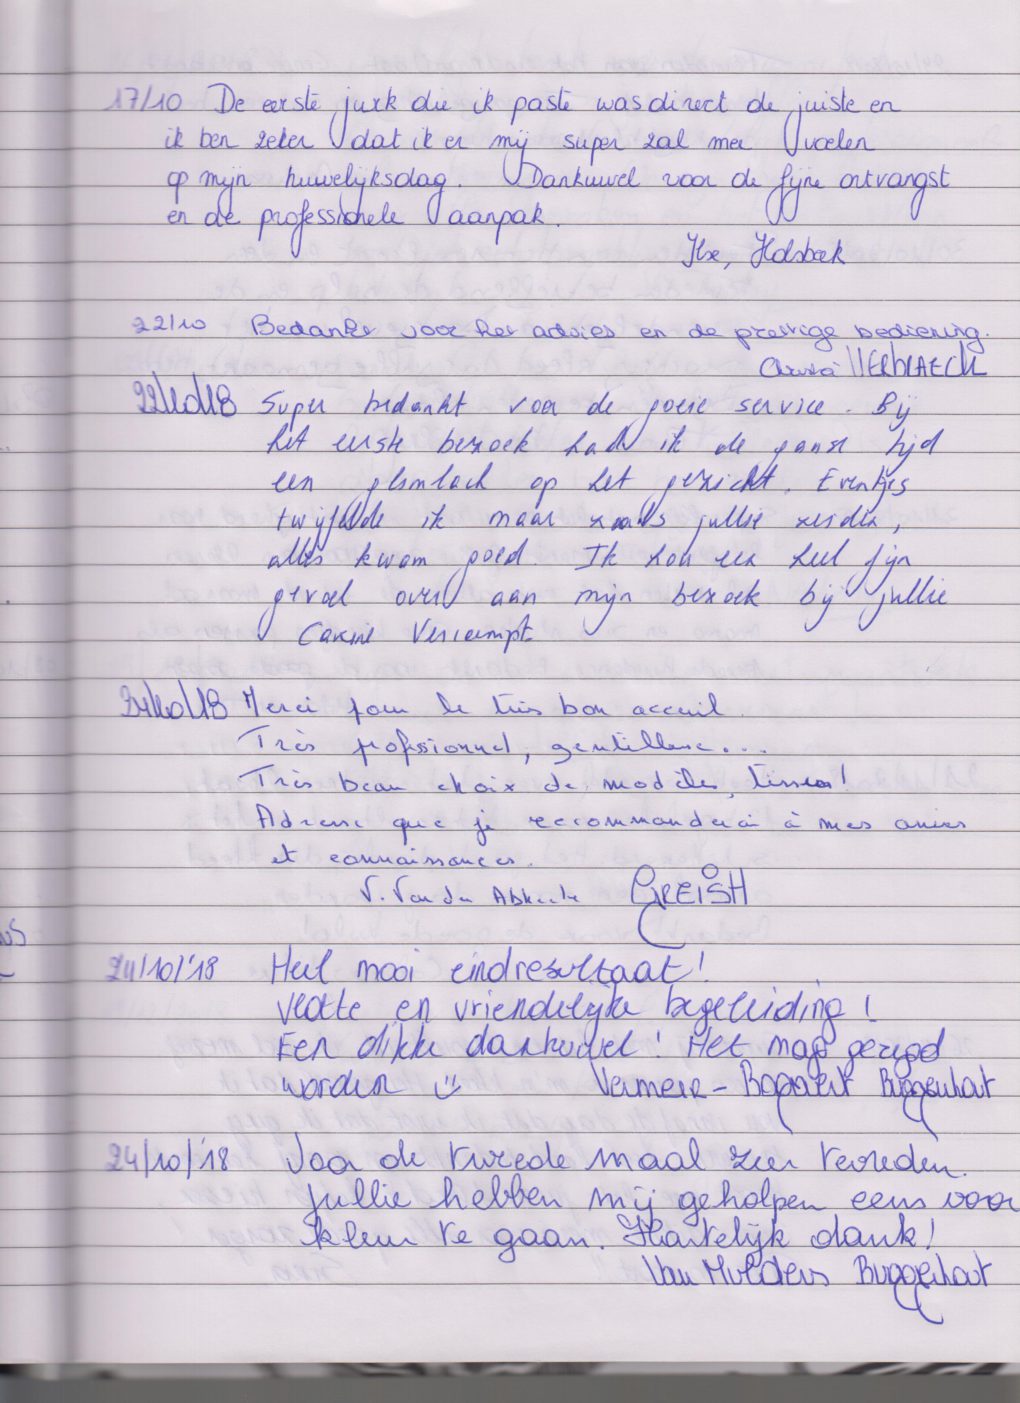 17/10 De eerste jurk die ik paste was direct de juiste en
ik ben zeker dat ik er mij super zal mee voelen
op mijn huwelijksdag. Dankuwel voor de fijne ontvangst
en de professionele aanpak.
Ilse, Holsbeek
22/10 Bedankt voor het advies en de prettige bediening.
22/10/18 Super bedankt voor de goeie service. Bij
het eerste bezoek had ik de ganse tijd
een glimlach op het gezicht. Eventjes
twijfelde ik maar zoals jullie zeiden,
alles kwam goed. Ik hou een heel fijn
gevoel over aan mijn bezoek bij jullie
Carine
24/10/18 Merci pour le très bon accueil.
Très profssionnel, gentillesse...
Très beau choix de modèles, tissus!
Adresse que je recommanderai à mes amies
et connaissances.
GREISH
24/10/'18 Heel mooi eindresultaat!
Vlotte en vriendelijke begeleiding!
Een dikke dankuwel! Het mag gezegd
worden Vermeir - Bogaert Buggenhout
24/10/'18 Voor de tweede maal zeer tevreden.
Jullie hebben mij geholpen eens voor
kleur te gaan. Hartelijk dank!
Van Mulders Buggenhout